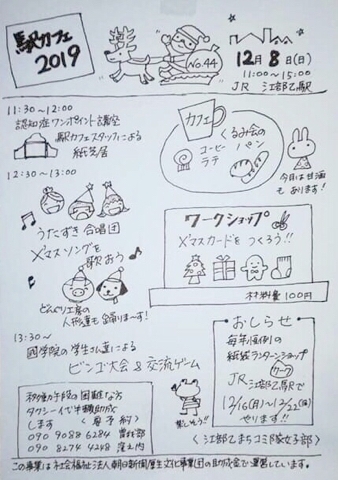 駅カフェ
2019
No.44
12月8日(日)
11:00〜15:00
JR 江部乙駅
11:30〜12:00
認知症ワンポイント講座
駅カフェスタッフによる
紙芝居
カフェ
コーヒー
ラテ
くるみ会の
パン
今月は甘酒
もあります!
12:30〜13:00
うたずき合唱団
X'マスソングを
歌おう
どんぐり工房の
人形達も踊りまーす!
ワークショップ
X'マスカードをつくろう!!
材料費100円
13:30〜
國學院の学生さん達による
ビンゴ大会&交流ゲーム
移動手段の困難な方
タクシー代半額助成
します(要予約)
090 9088 6284
090 8274 4248
楽しそう!!
おしらせ
毎年恒例の
紙袋ランターンワークショップ
JR江部乙駅で
12/16(月)〜12/22(日)
やります!!
〈江部乙まちコミ隊女子部〉
この事業は社会福祉法人朝日新聞厚生文化事業団の助成金で運営しています。